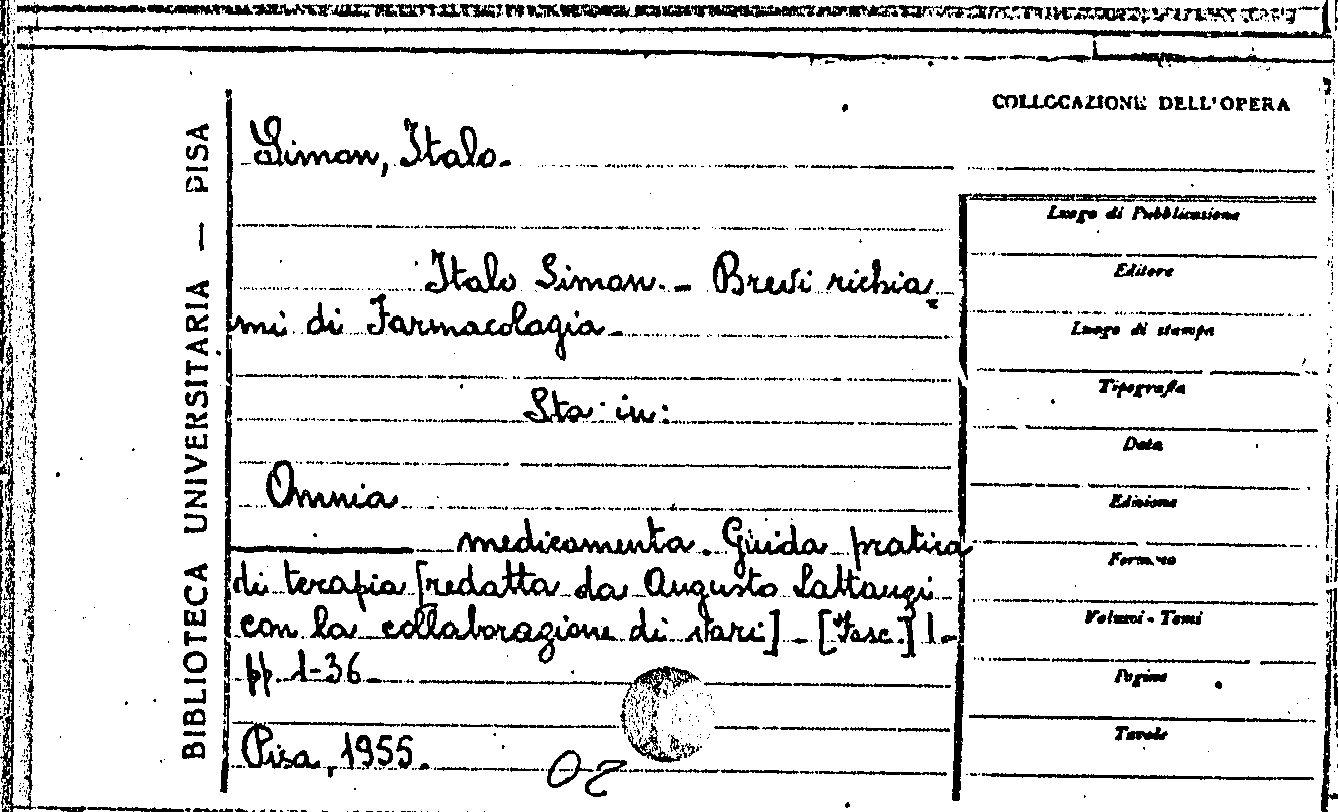 COLLOCAZIONE DELL'OPERA
BIBLIOTECA UNIVERSITARIA — PISA
Simon, Italo.
Italo Simon. - Brevi richia=
mi di Farmacologia.
Sta in:
Omnia
medicamenta. Guida pratica
di terapia [redatta da Augusto Lattanzi
con la collaborazione di vari] - [Fasc.] 1-
pp. 1-36.
Pisa, 1955.
Luogo di Pubblicazione
Editore
Luogo di stampa
Tipografia
Data
Edizione
Formato
Volumi - Tomi
Pagine
Tavole